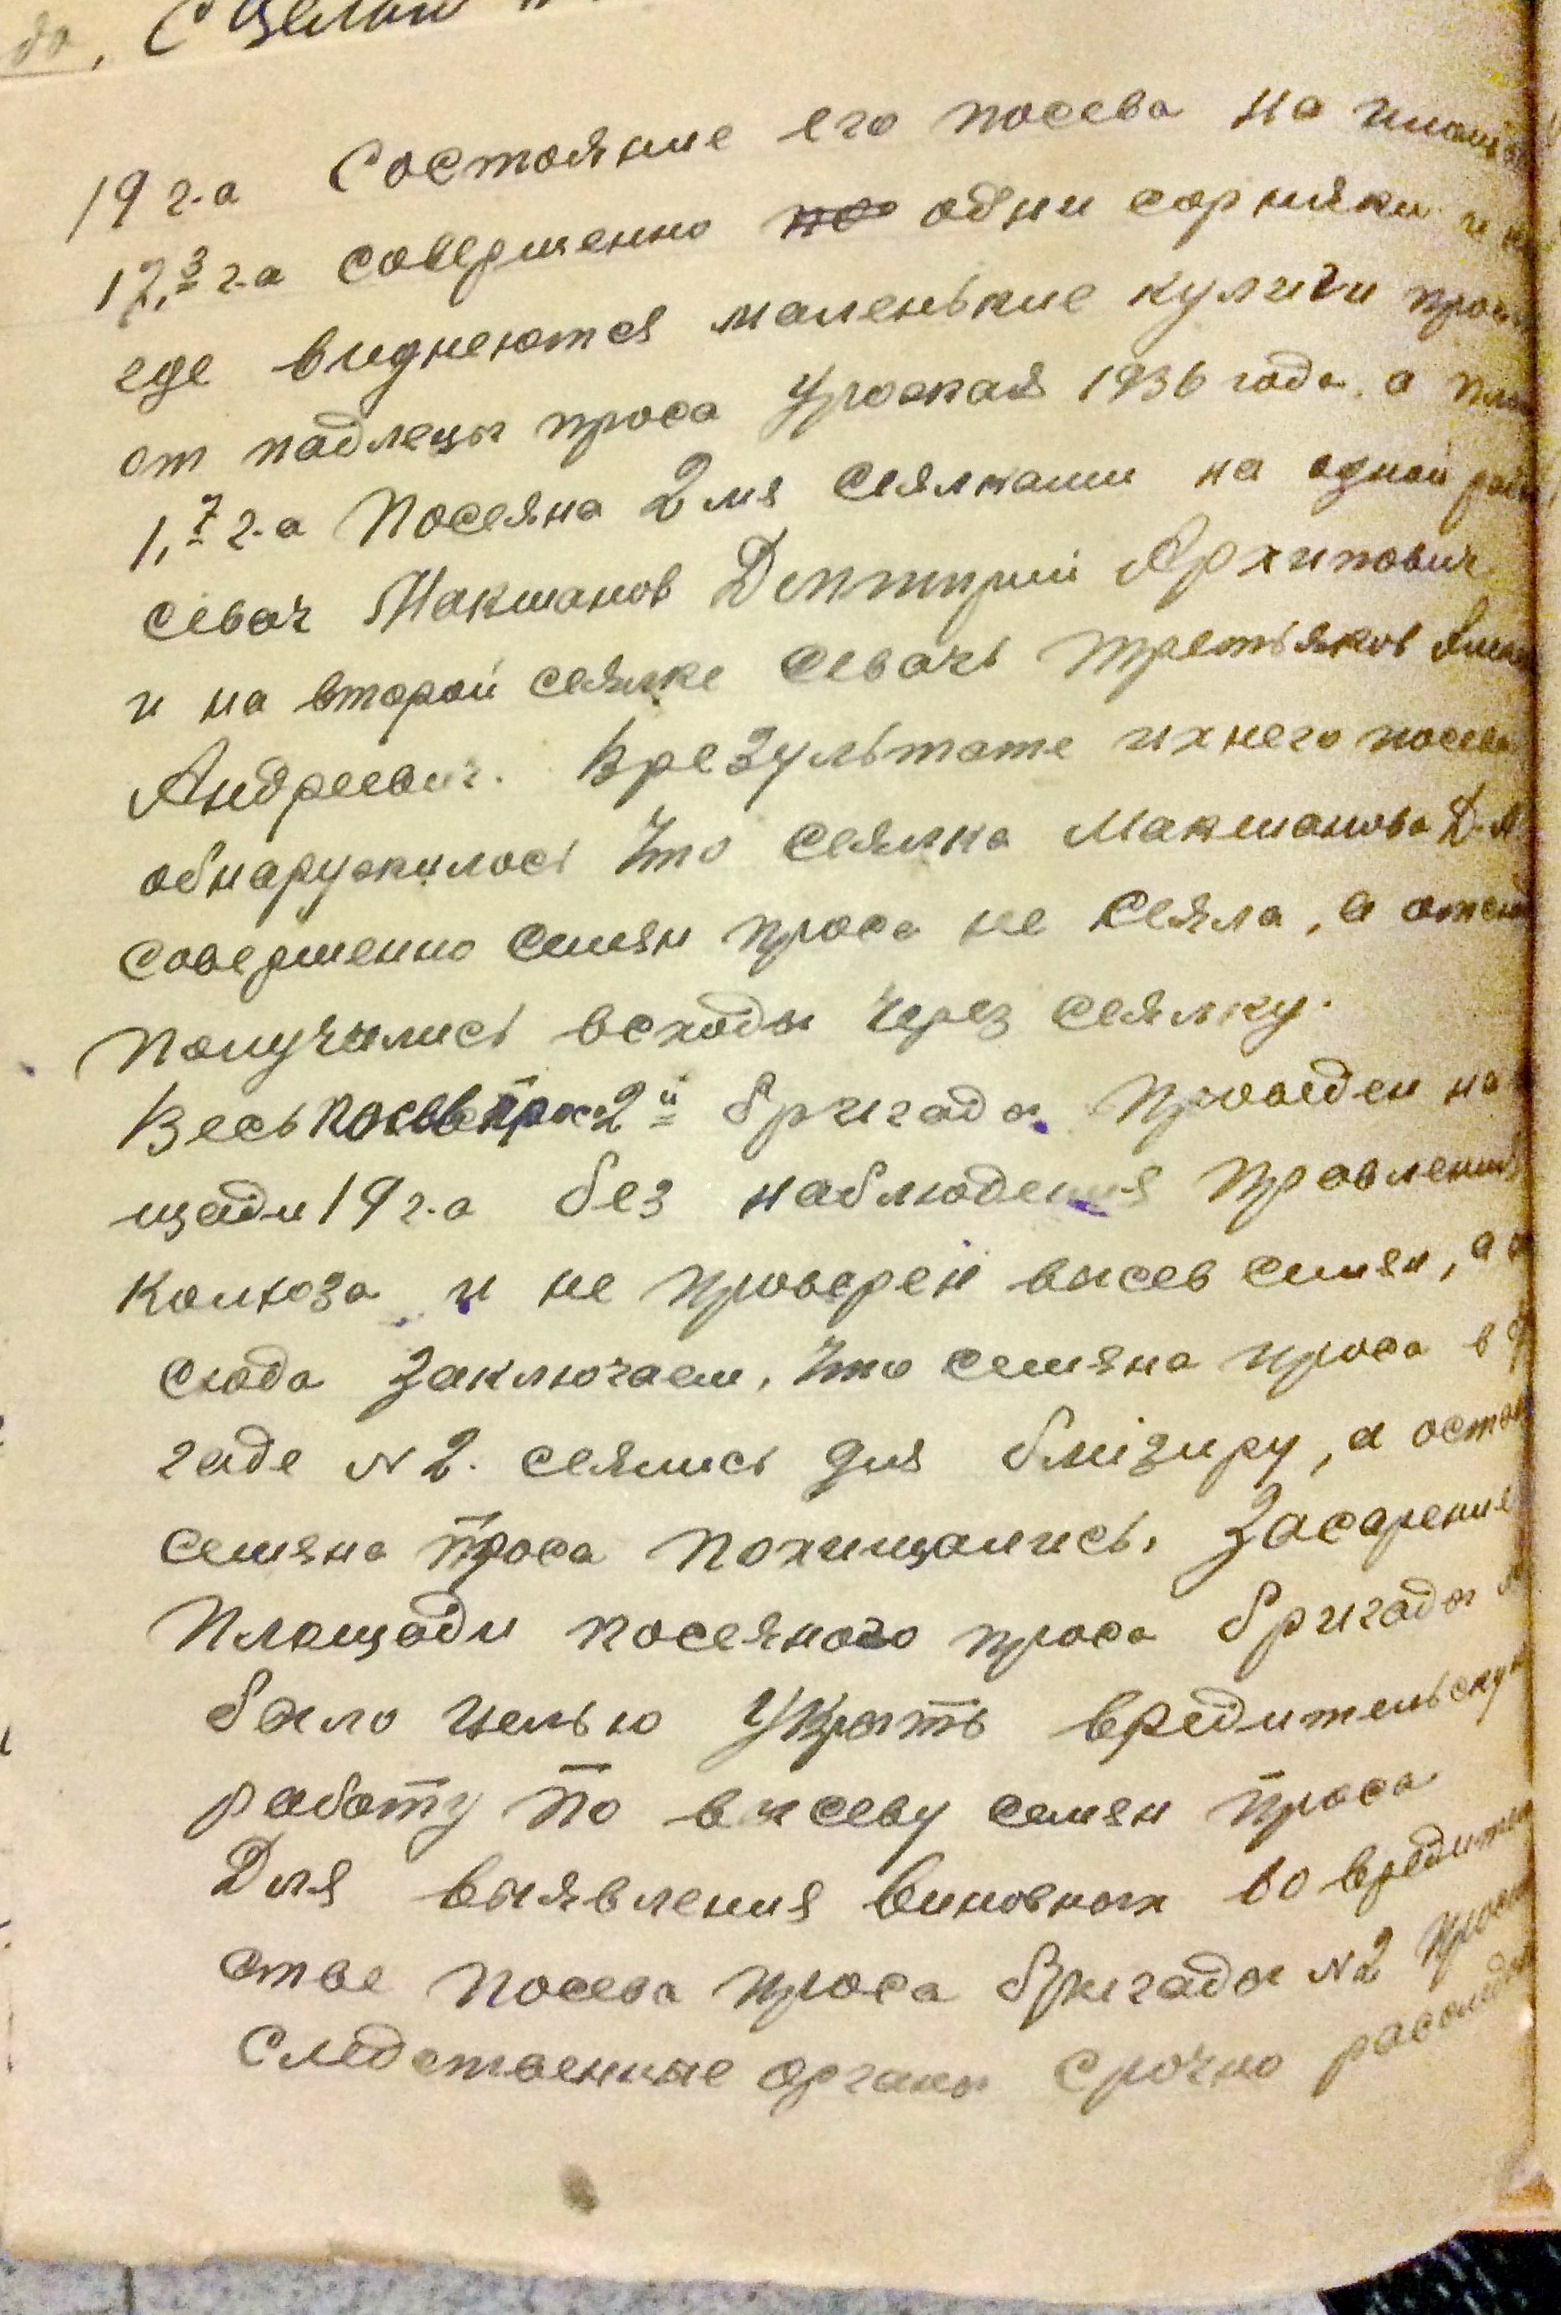 19 г.а Состояние его посева на
17,3 г.а совершенно но одни сорняки и
где виднеются маленькие кулиги
от падлецы проса Урожая 1936 года. а
1,7 г.а Посеяна 2мя сеялками на одной
севач Макшанов Дмитрий Архипович
и на второй сеялке севачь Третьяков
Андреевич. Врезультате ихнего посева
обнаружилось Что сеялка Макшанова Д.А
совершенно семян проса не сеяла, а
получились всходы Через сеялку.
Весь посев проса 2й бригады Проведен на
щади 19 г.а без наблюдения Правления
Колхоза и не проверен высев семян, а
сюда Заключаем, Что семяна проса в
гаде N 2. сеялись для блізиру, а
семяна проса Похищались, Засарения
Площади посеяного проса бригады
было целью Укрыть вредительскую
работу По высеву семян проса
Для выявления виновных во
стве Посева проса бригады N2
Следственные органы срочно